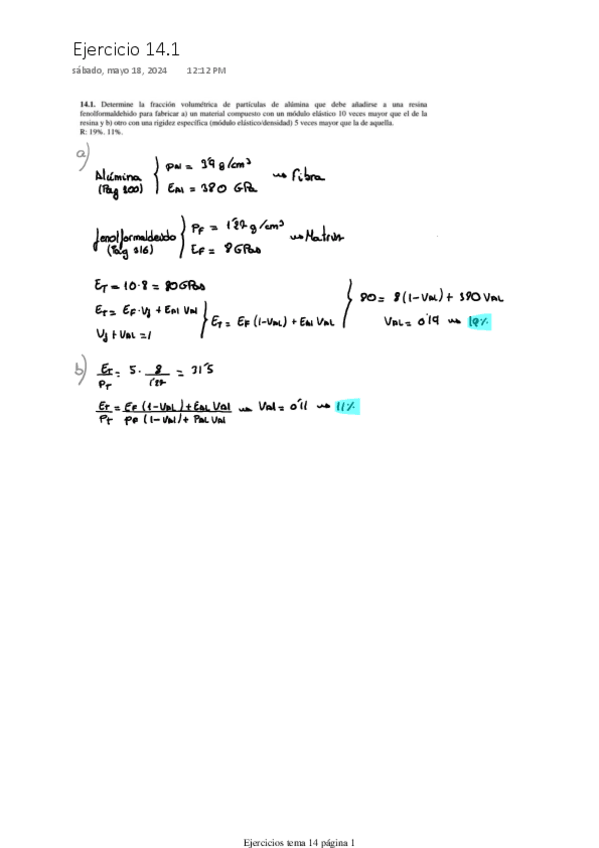 Ejercicio 14.1
sábado, mayo 18, 2024 12:12 PM
14.1. Determine la fracción volumétrica de partículas de alúmina que debe añadirse a una resina
fenolformaldehido para fabricar a) un material compuesto con un módulo elástico 10 veces mayor que el de la
resina y b) otro con una rigidez específica (módulo elástico/densidad) 5 veces mayor que la de aquella.
R: 19%. 11%.
a)
Alúmina
(Pag 200)
ρAl = 3'9 g/cm³
EAl = 380 GPa
→ Fibra
fenolformaldehido
(Pág 216)
ρF = 1'27 g/cm³
EF = 8 GPas
→ Matriz
ET = 10·8 = 80 GPas
ET = EF·Vf + EAl VAl
Vf + VAL = 1
ET = EF (1-VAL) + EAL VAL
80 = 8(1-VAL) + 380 VAL
VAL = 0'19 → 19%
b) ET/ρT = 5 · 8/1'27 = 31'5
ET/ρT = EF (1-VAL) + EAL VAL / ρF (1-VAl) + ρAL VAL → VAl = 0'11 → 11%
Ejercicios tema 14 página 1